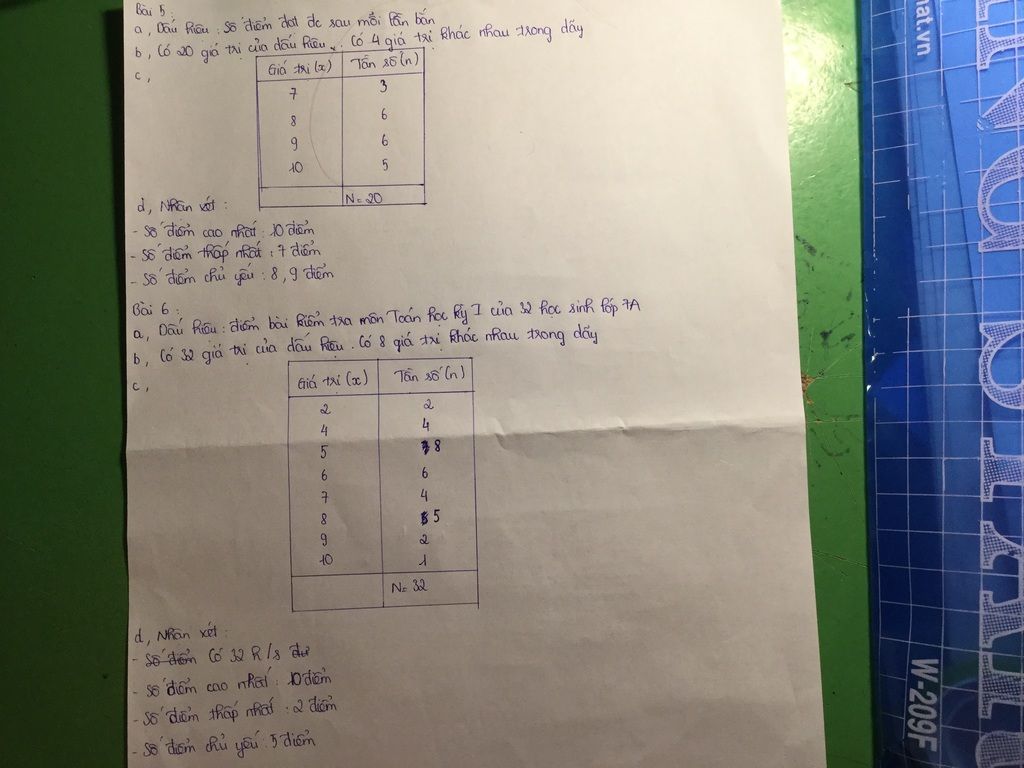 Bài 5:
a, Dấu hiệu: Số điểm đạt dc sau mỗi lần bắn
b, Có 20 giá trị của dấu hiệu. Có 4 giá trị khác nhau trong dãy
c,
Giá trị (x) Tần số (n)
7 3
8 6
9 6
10 5
N = 20
d, Nhận xét:
- Số điểm cao nhất: 10 điểm
- Số điểm thấp nhất: 7 điểm
- Số điểm chủ yếu: 8, 9 điểm
Bài 6:
a, Dấu hiệu: điểm bài kiểm tra môn Toán học kỳ I của 32 học sinh lớp 7A
b, Có 32 giá trị của dấu hiệu. Có 8 giá trị khác nhau trong dãy
c,
Giá trị (x) Tần số (n)
2 2
4 4
5 8
6 6
7 4
8 5
9 2
10 1
N = 32
d, Nhận xét:
- Số điểm Có 32 h/s
- Số điểm cao nhất: 10 điểm
- Số điểm thấp nhất: 2 điểm
- Số điểm chủ yếu: 5 điểm
hat.vn
W-209F